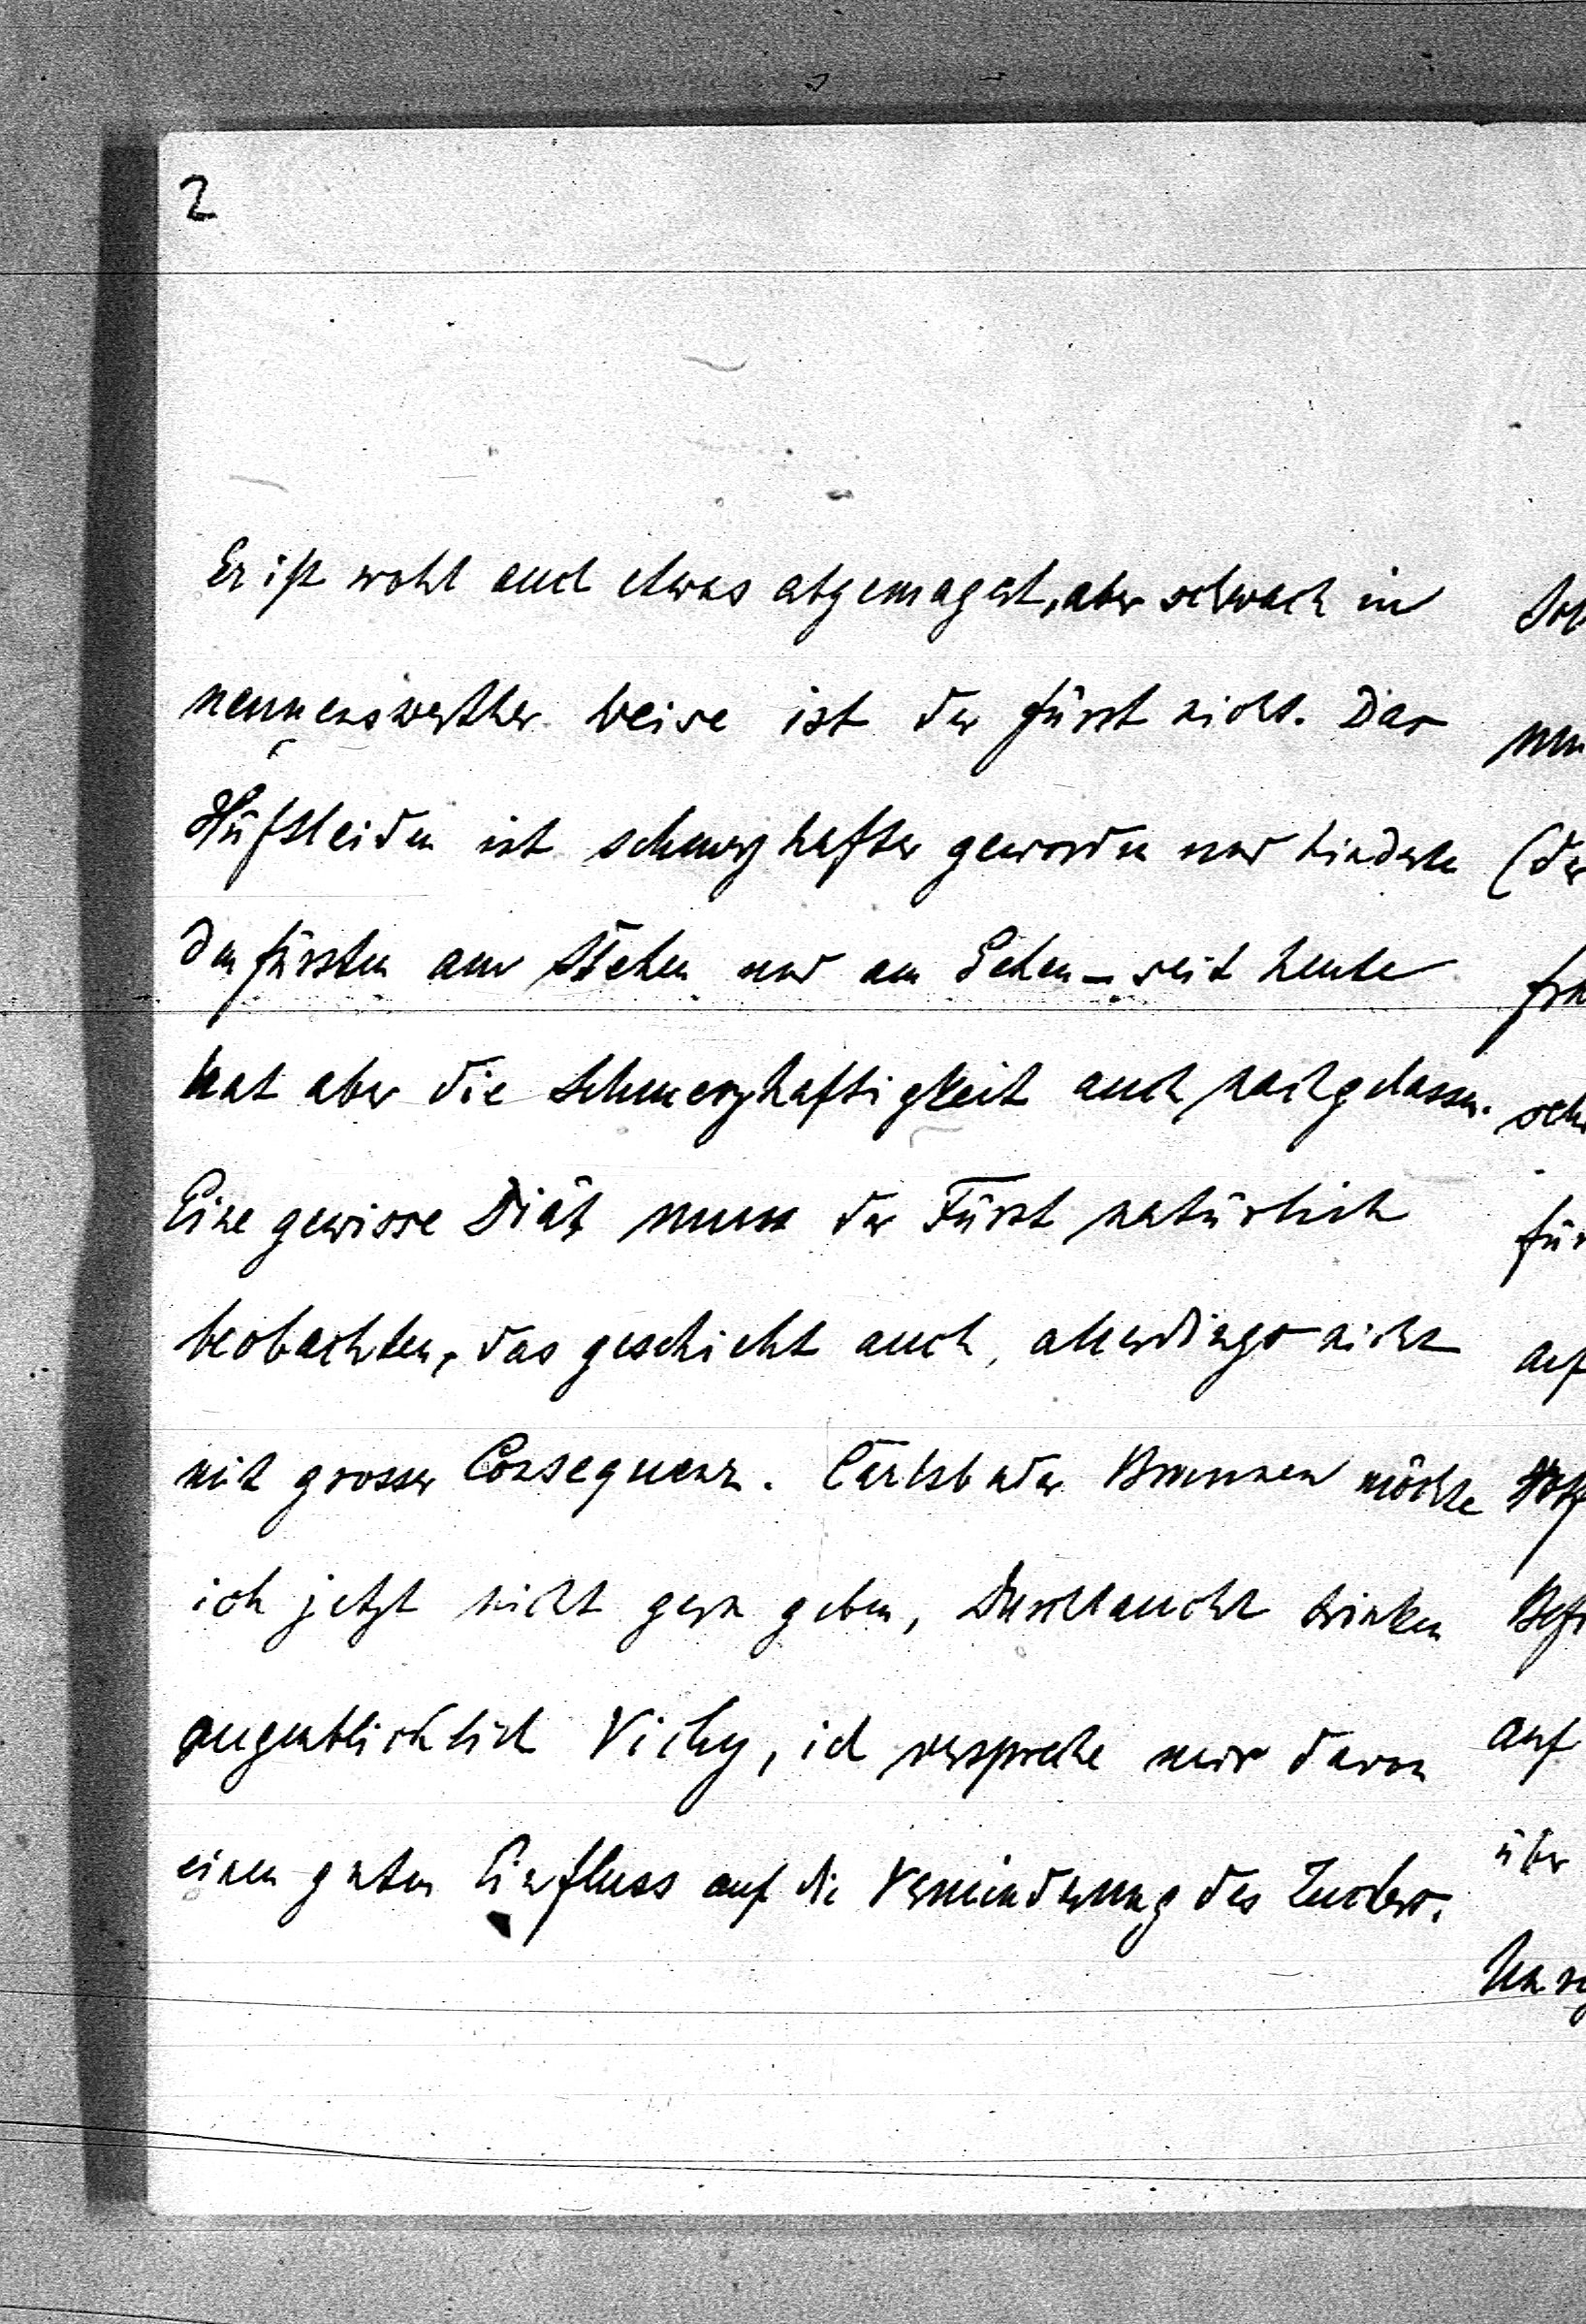 2
Er ist wohl auch etwas abgemagert, aber schwach in
nennenswerther Weise ist der Fürst nicht. Das
Hüftleiden ist schmerzhafter geworden und hindert
den Fürsten am Stehen und am Gehen – seit heute
hat aber die Schmerzhaftigkeit auch nachgelassen.
Eine gewisse Diät muss der Fürst natürlich
beobachten, das geschieht auch, allerdings nicht
mit grosser Consequenz. Carlsbader Brunnen möchte
ich jetzt nicht gern geben, Durchlaucht trinken
augenblicklich Vichy, ich verspreche mir davon
einen guten Einfluss auf die Verminderung des Zuckers.
auf
über